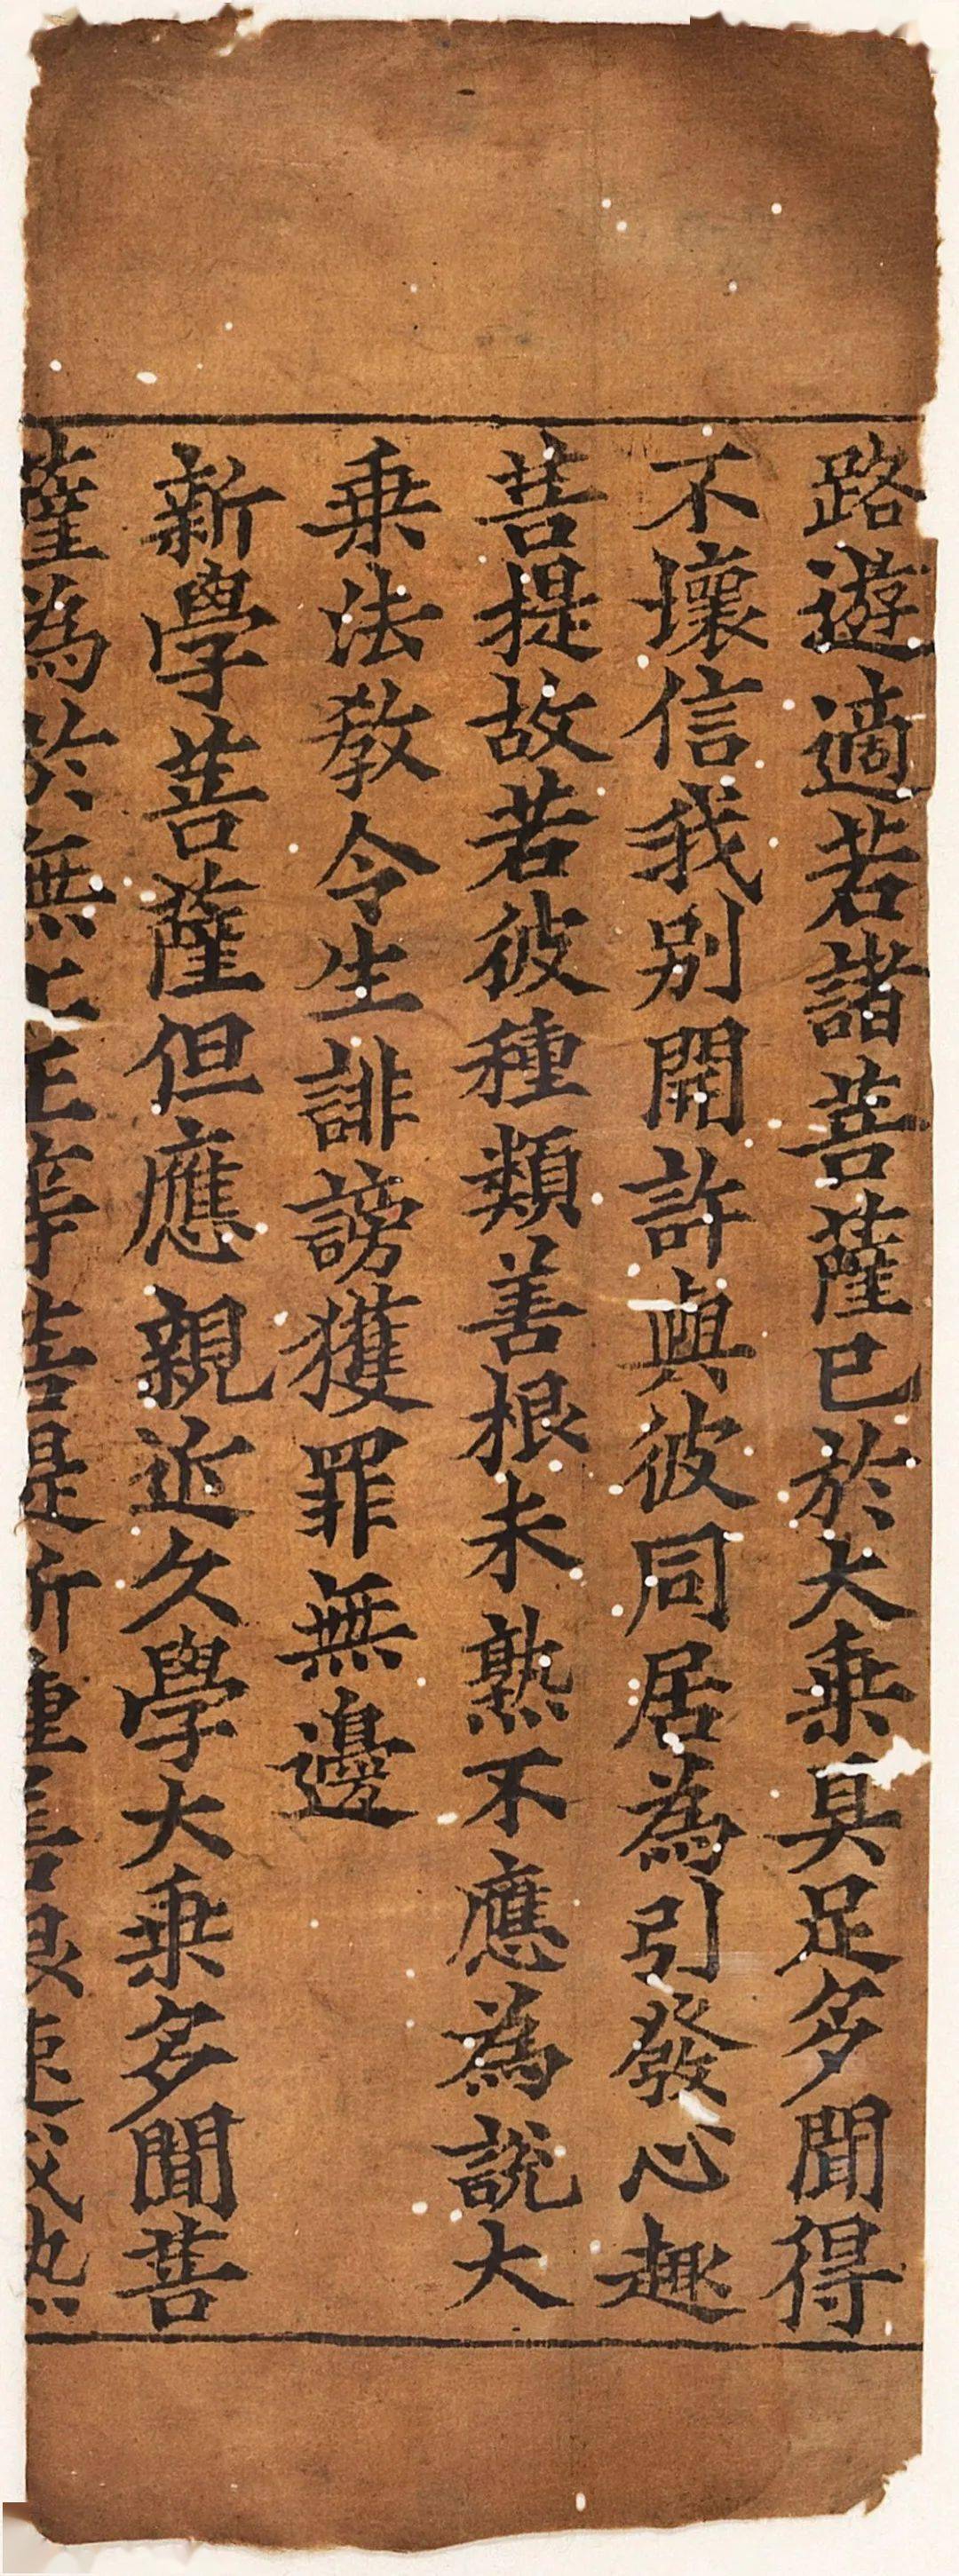 路遊適若諸菩薩已於大乗具足多聞得
不壞信我別開許與彼同居為引發心趣
菩提故若彼種類善根未熟不應為說大
乗法教令生誹謗獲罪無邊
新學菩薩但應親近久學大乗多聞菩
薩為於無上正等菩提所種善根速成熟